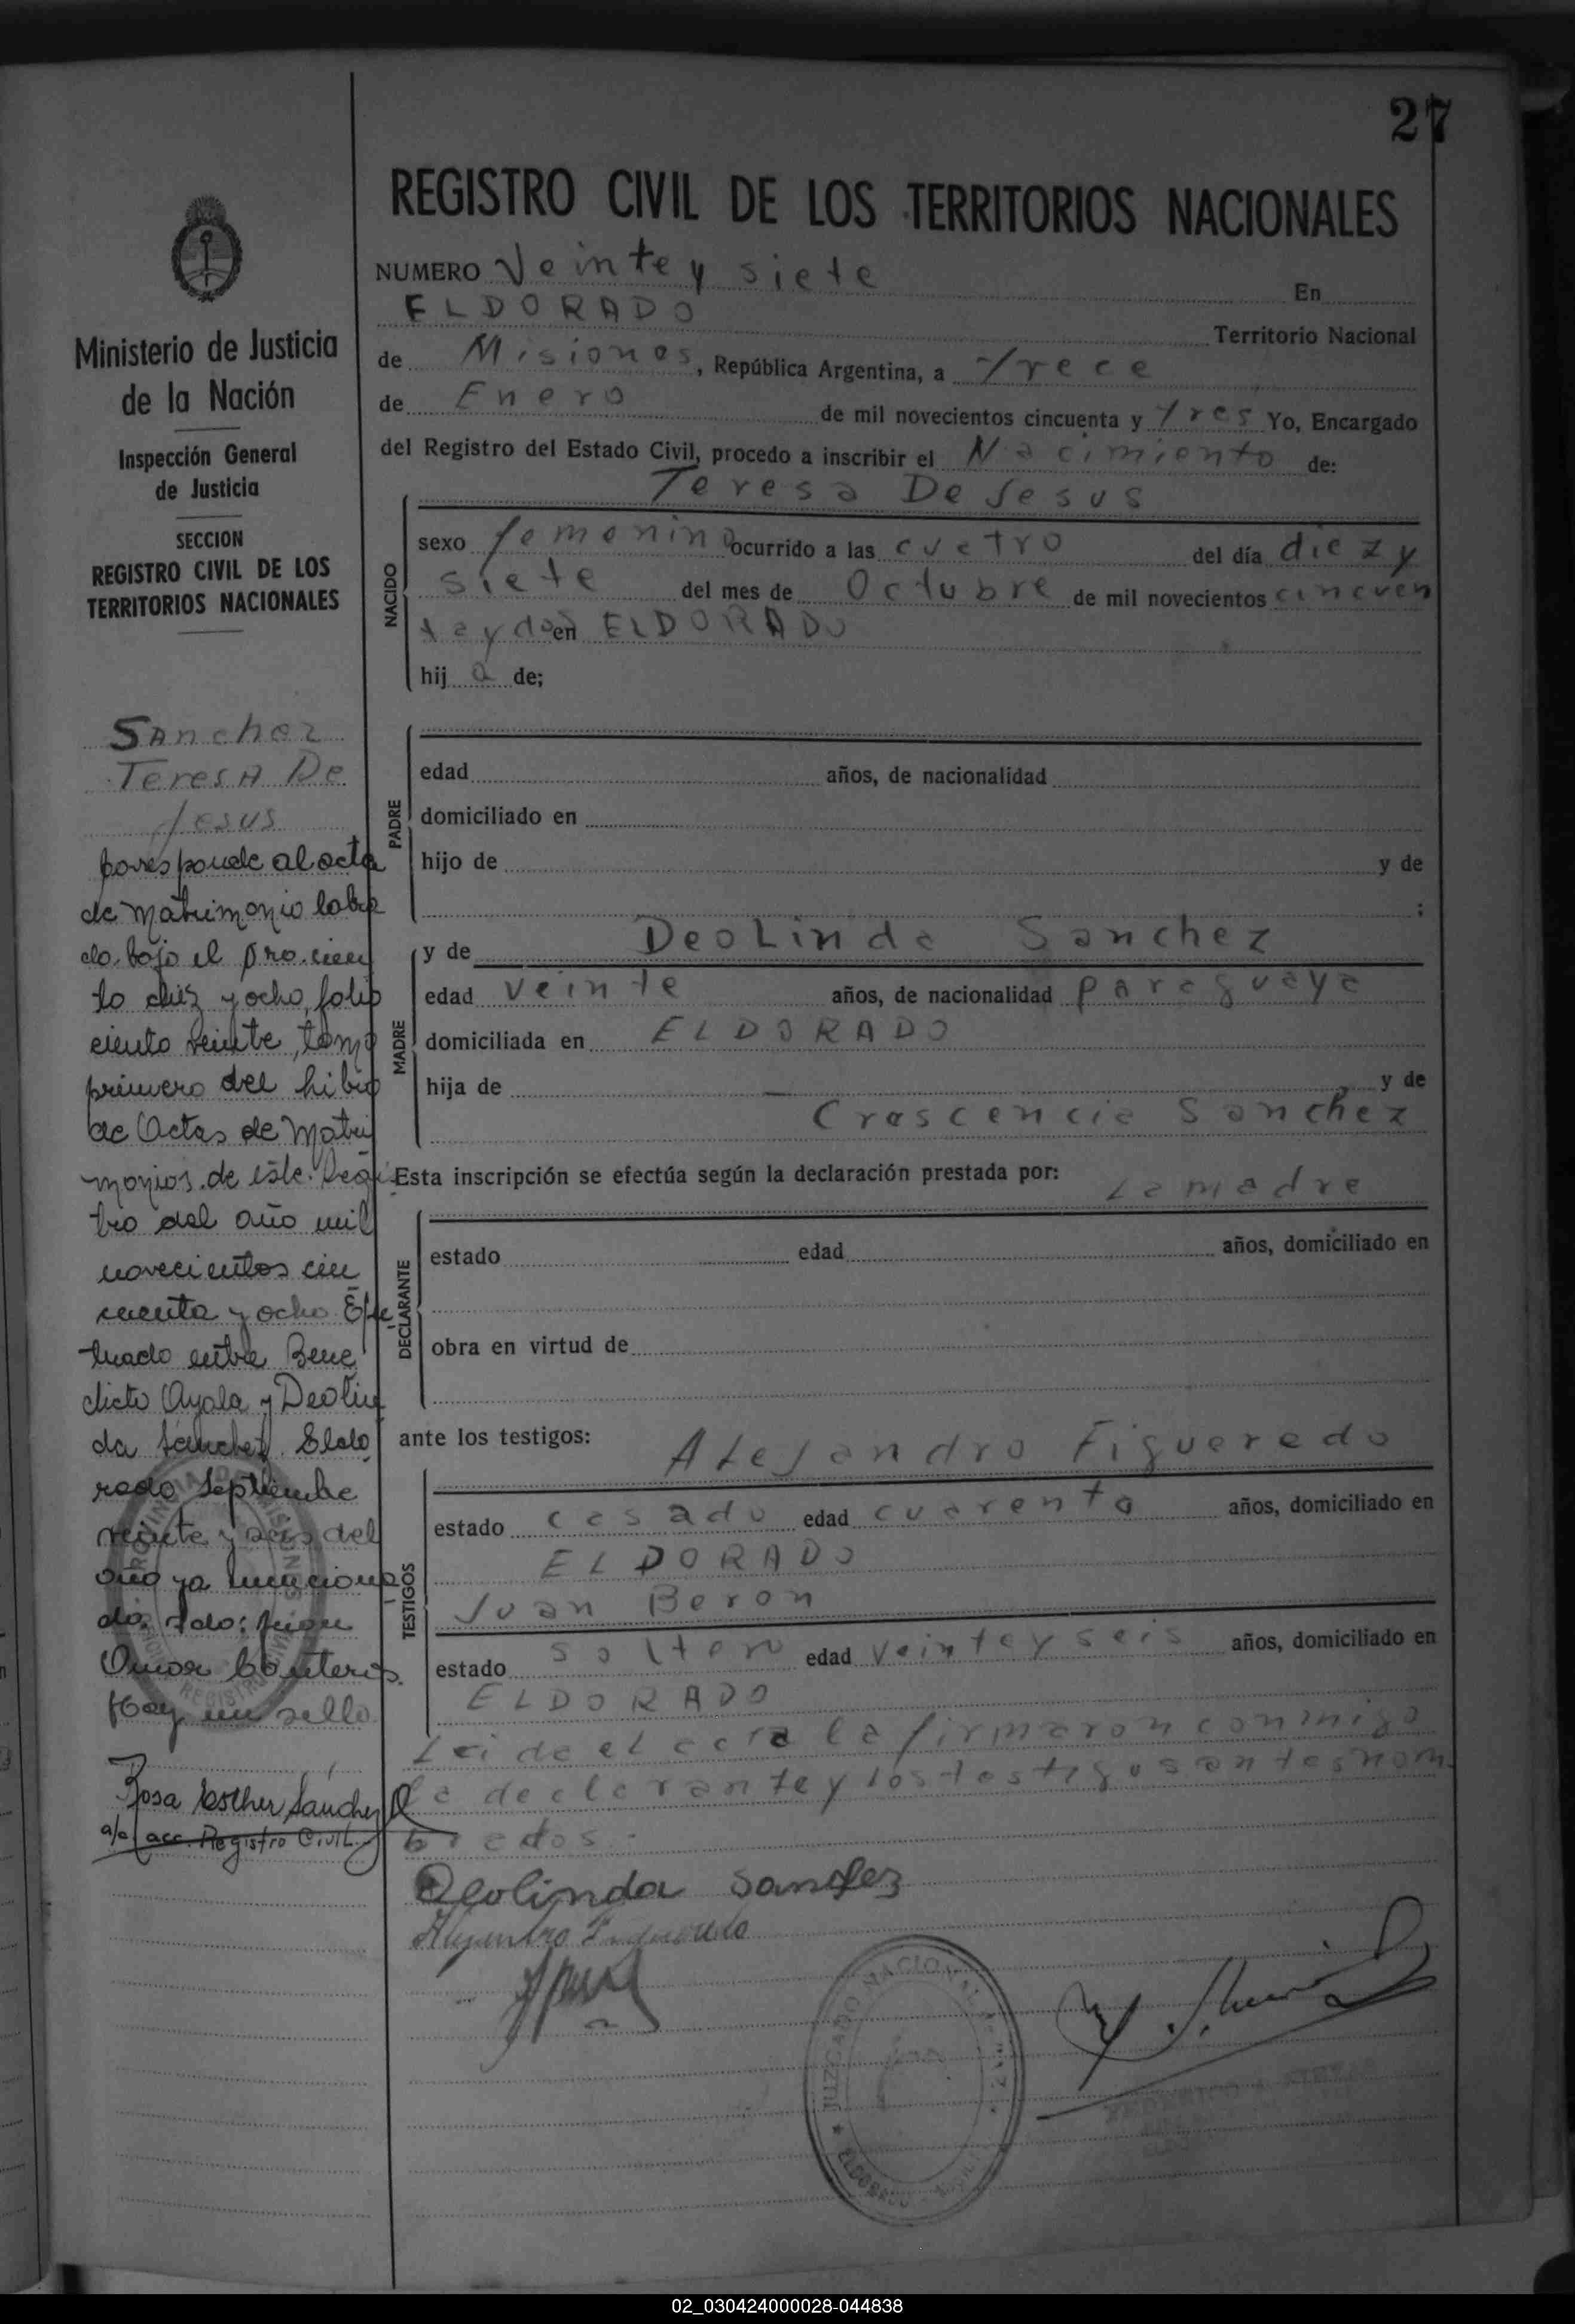 27
REGISTRO CIVIL DE LOS TERRITORIOS NACIONALES
NUMERO Veinte y siete En
ELDORADO Territorio Nacional
de Misiones, República Argentina, a Trece
de Enero de mil novecientos cincuenta y Tres Yo, Encargado
del Registro del Estado Civil, procedo a inscribir el Nacimiento de:
Teresa De Jesus
NACIDO
sexo femenino ocurrido a las cuatro del día diez y
siete del mes de Octubre de mil novecientos cincuen
ta y dos en ELDORADO
hij a de;
PADRE
edad años, de nacionalidad
domiciliado en
hijo de y de
;
MADRE
y de Deolinda Sanchez
edad veinte años, de nacionalidad paraguaya
domiciliada en ELDORADO
hija de — y de
Crescencia Sanchez
Esta inscripción se efectúa según la declaración prestada por: La madre
DECLARANTE
estado edad años, domiciliado en
obra en virtud de
ante los testigos: Alejandro Figueredo
TESTIGOS
estado casado edad cuarenta años, domiciliado en
ELDORADO
Juan Beron
estado soltero edad veinte y seis años, domiciliado en
ELDORADO
Leida el acta la firmaron conmigo
la declarante y los testigos antes nom
brados.
Deolinda Sanchez
Alejandro Figueredo
JUZGADO NACIONAL DE PAZ
ELDORADO
Ministerio de Justicia
de la Nación
Inspección General
de Justicia
SECCION
REGISTRO CIVIL DE LOS
TERRITORIOS NACIONALES
Sanchez
Teresa De
Jesus
Corresponde al acta
de matrimonio labra
do bajo el Nro. cien
to diez y ocho, folio
ciento veinte, tomo
primero del Libro
de Actas de Matri
monios de este Regis
tro del año mil
novecientos cin
cuenta y ocho. Efec
tuado entre Bene
dicto Ayala y Deolin
da Sánchez. Eldo
rado Septiembre
veinte y seis del
año ya menciona
do. Fdo: Juan
Omar Conteris.
Hay un sello
Rosa Esther Sánchez
a/c acc. Registro Civil
02_030424000028-044838